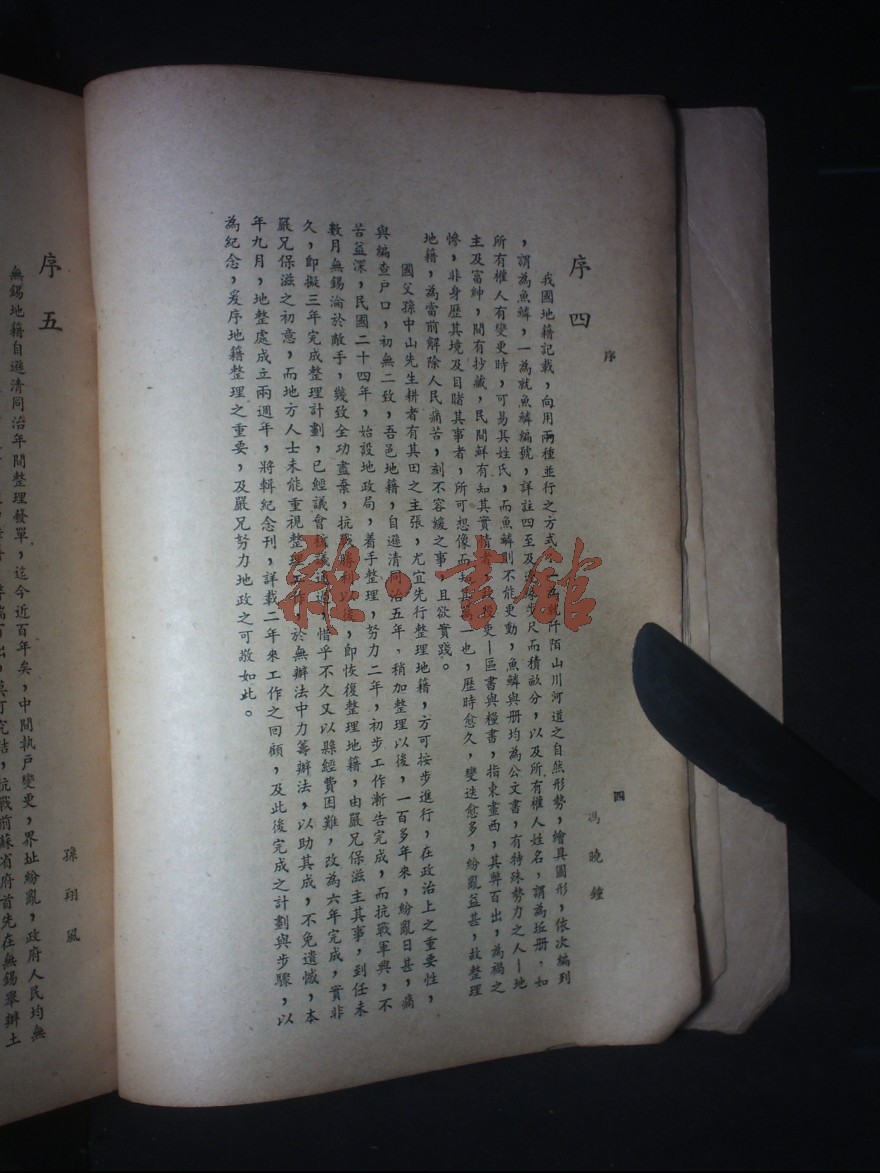 序
四
序四
馮曉鐘
我國地籍記載，向用兩種並行之方式，一為就阡陌山川河道之自然形勢，繪具圖形，依次編列
，謂為魚鱗，一為就魚鱗編號，詳註四至及步尺而積畝分，以及所有權人姓名，謂為坵册，如
所有權人有變更時，可易其姓氏，而魚鱗則不能更動，魚鱗與册均為公文書，有特殊勢力之人—地
主及富紳，間有抄藏，民間鮮有知其實情者，更—區書與糧書，指東畫西，其弊百出，為禍之
慘，非身歷其境及目睹其事者，所可想像而知其萬一也，歷時愈久，變迭愈多，紛亂益甚，故整理
地籍，為當前解除人民痛苦，刻不容緩之事，且欲實踐。
國父孫中山先生耕者有其田之主張，尤宜先行整理地籍，方可按步進行，在政治上之重要性，
與編查戶口，初無二致，吾邑地籍，自遜清同治五年，稍加整理以後，一百多年來，紛亂日甚，痛
苦益深，民國二十四年，始設地政局，着手整理，努力二年，初步工作漸告完成，而抗戰軍興，不
數月無錫淪於敵手，幾致全功盡棄，抗戰勝利以後，即恢復整理地籍，由嚴兄保滋主其事，到任未
久，即擬三年完成整理計劃，已經議會核議通過，惜乎不久又以縣經費困難，改為六年完成，實非
嚴兄保滋之初意，而地方人士未能重視整理工作，於無辦法中力籌辦法，以助其成，不免遺憾，本
年九月，地整處成立兩週年，將輯紀念刊，詳載二年來工作之回顧，及此後完成之計劃與步驟，以
為紀念，爰序地籍整理之重要，及嚴兄努力地政之可敬如此。
序五
孫翔風
無錫地籍自遜清同治年間整理發單，迄今近百年矣，中間執戶變更，界址紛亂，政府人民均無
弊端百出，莫可究詰，抗戰前蘇省府首先在無錫舉辦土
雜·書館